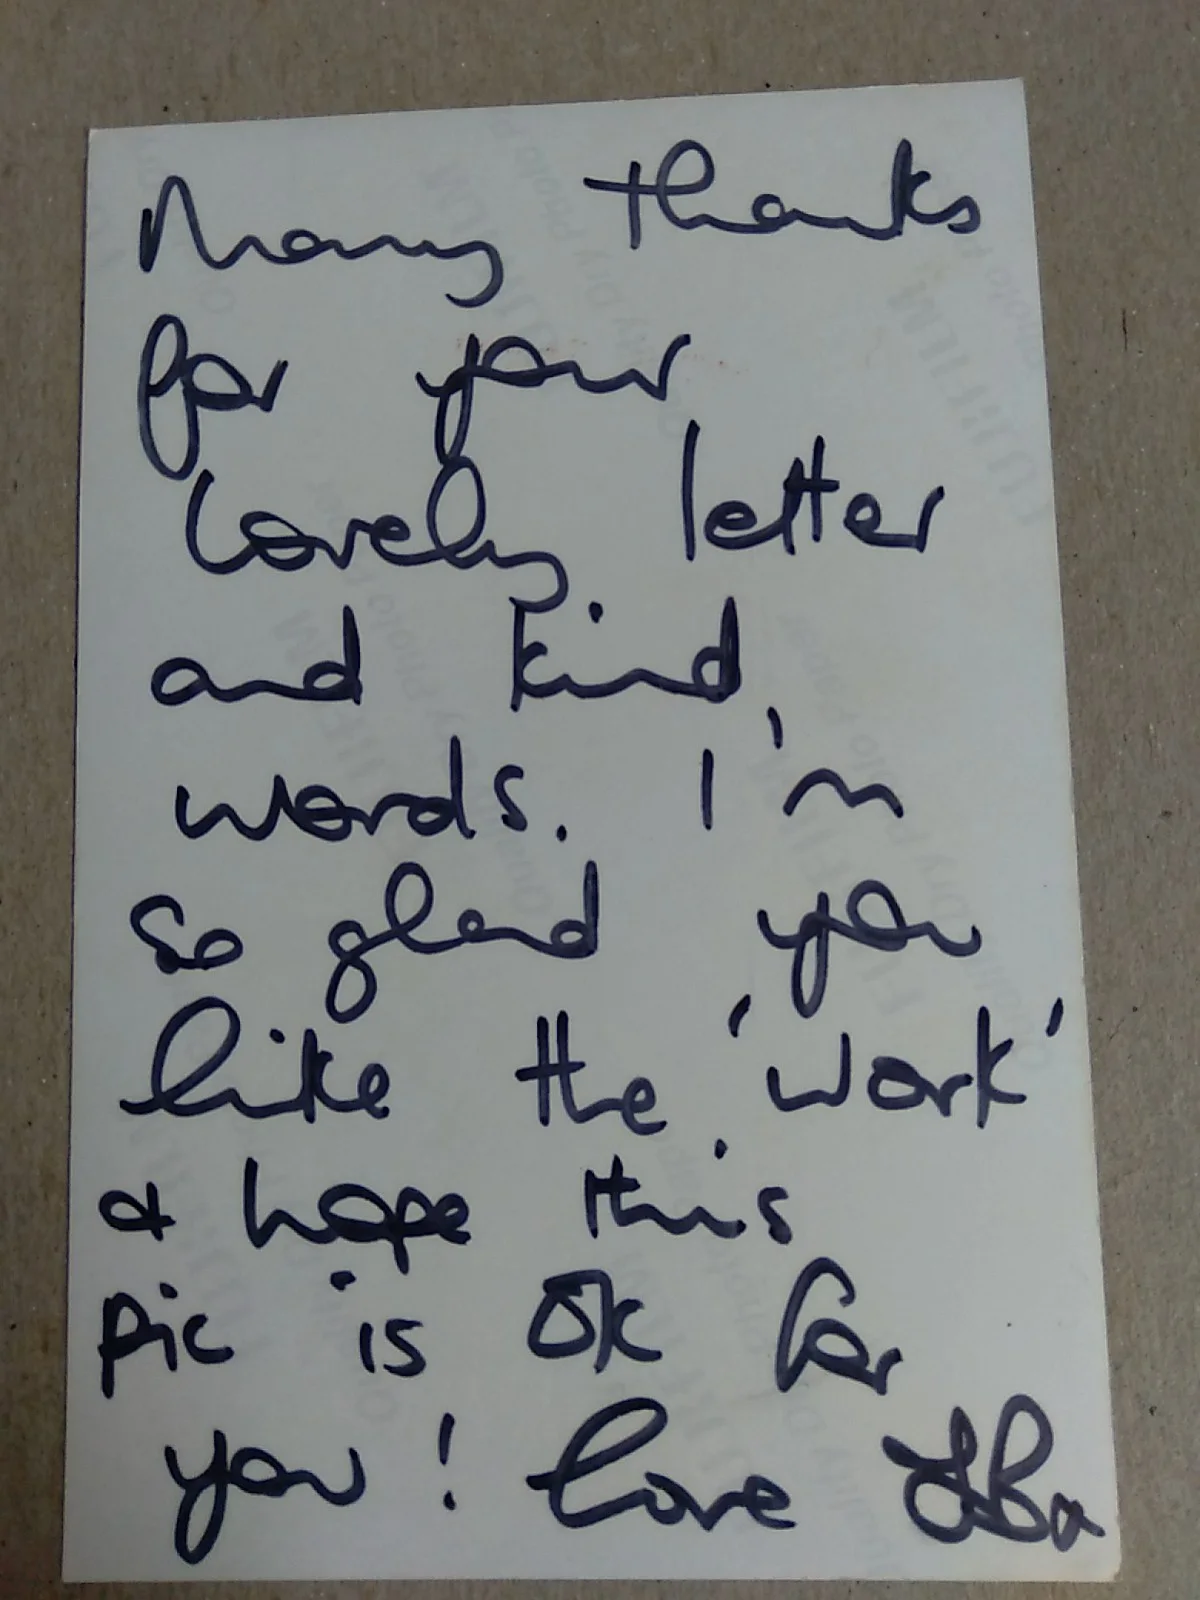 Many thanks
for your
lovely letter
and kind
words. I'm
so glad you
like the 'work'
& hope this
pic is OK for
you! Love